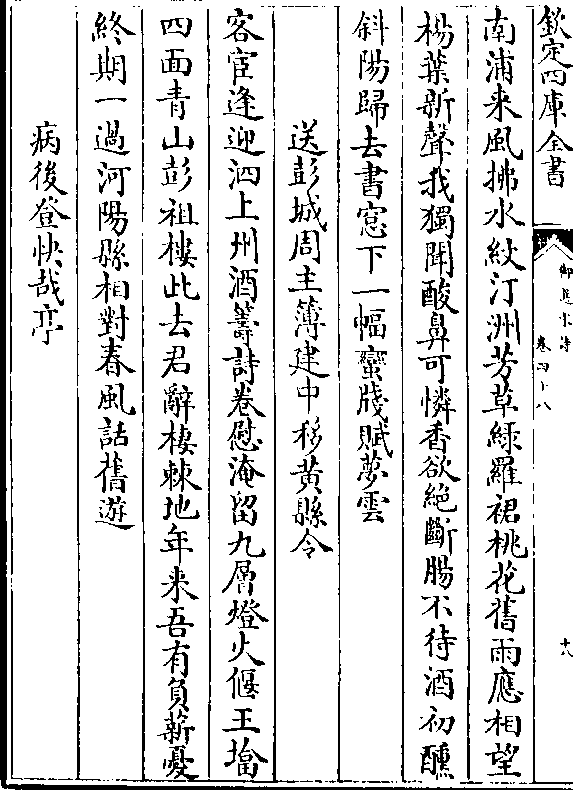 欽定四庫全書
御選宋詩 卷四十八
十八
南浦来風拂水紋汀洲芳草緑羅裙桃花舊雨應相望
楊葉新聲我獨聞酸鼻可憐香欲絶斷腸不待酒初醺
斜陽歸去書窓下一幅蠻牋賦夢雲
送彭城周主簿建中移黄縣令
客宦逢迎泗上州酒籌詩卷慰淹留九層燈火偃王墖
四面青山彭祖樓此去君辭棲棘地年来吾有負薪憂
終期一過河陽縣相對春風話舊遊
病後登快哉亭